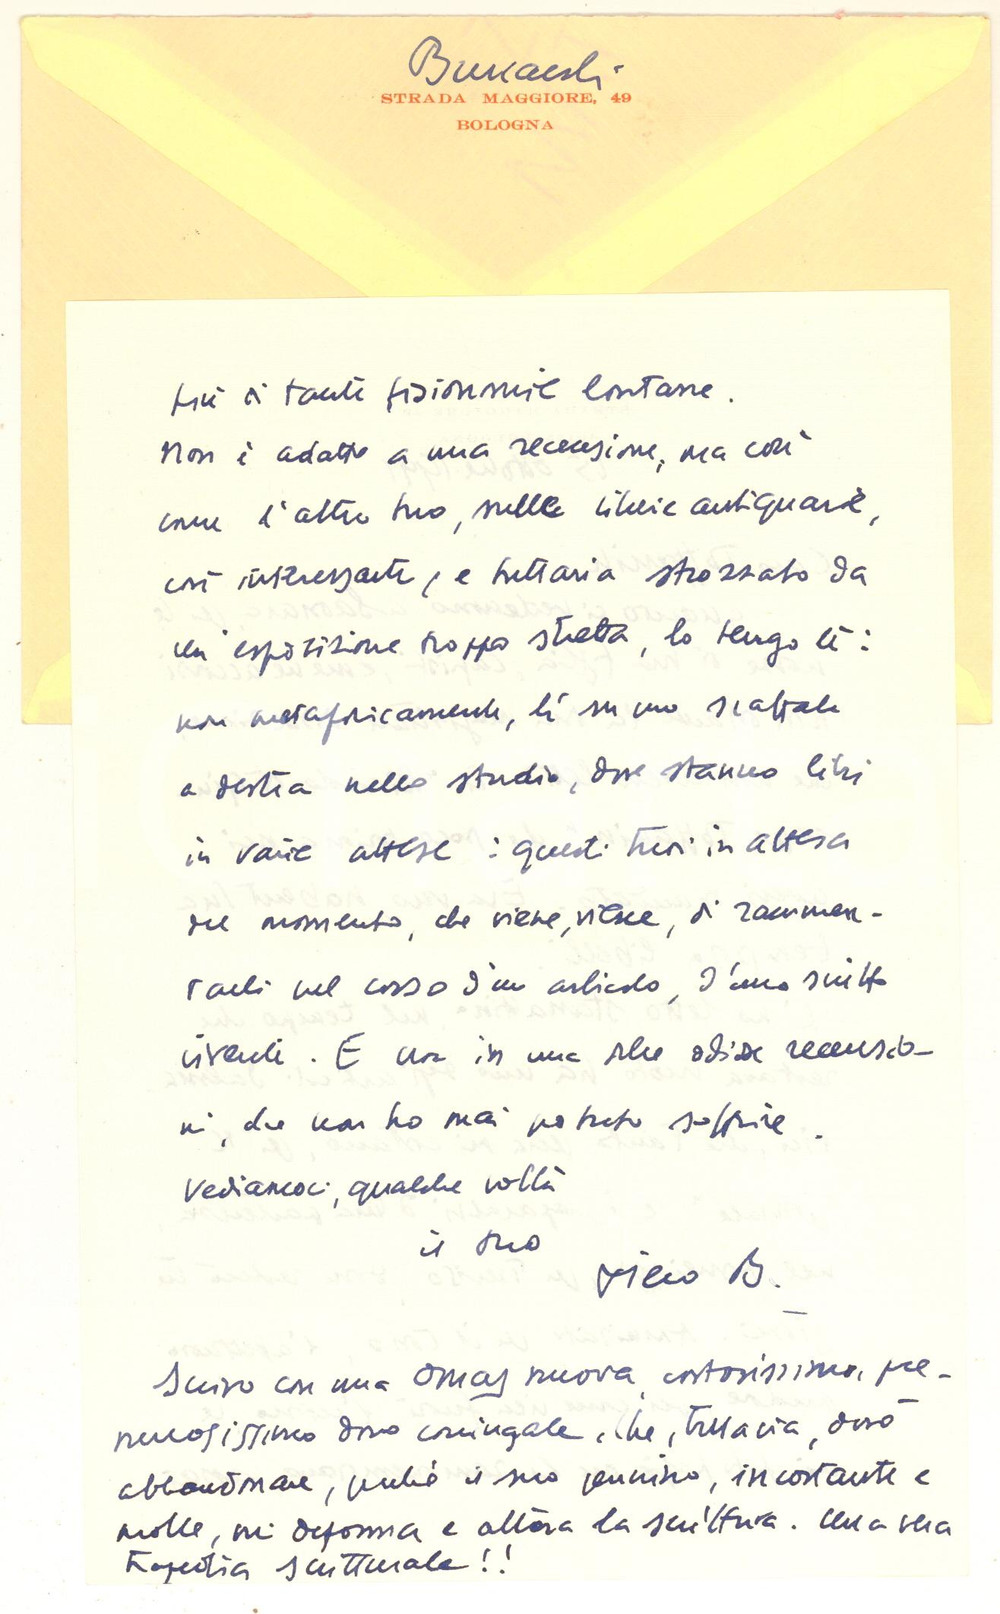 Buscaroli
STRADA MAGGIORE, 49
BOLOGNA
più di tante fisionomie lontane.
Non è adatto a una recensione, ma così
come l'altro tuo, sulle librerie antiquarie,
così interessante, e tuttavia strozzato da
un'esposizione troppo stretta, lo tengo lì:
non metaforicamente, lì su uno scaffale
a destra nello studio, dove stanno libri
in varie attese: questi tuoi in attesa
del momento, che viene, viene, di rammen-
tarli nel corso d'un articolo, d'uno scritto
. E non in una recensio-
ni, che non ho mai potuto soffrire.
Vediamoci, qualche volta
il tuo
Piero B.
Scrivo con una Omas nuova, costosissimo, pre-
dono coniugale, che, tuttavia, dovrò
abbandonare, perché il suo pennino, incostante e
molle, mi deforma e altera la scrittura. Una vera
tragedia scritturale!!